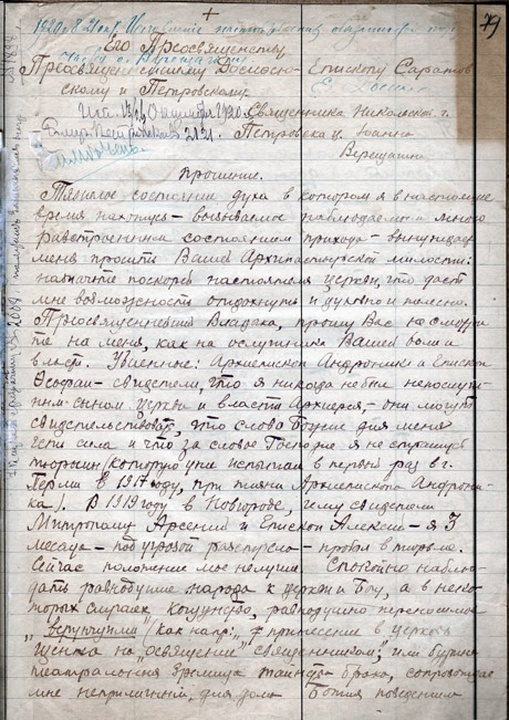 79
Его Преосвященству
Преосвященнейшему Досифею Епископу Саратов
скому и Петровскому.
Священника Никольской г.
Петровска ц. Иоанна
Верещагина
Прошение.
Тяжелое состояние духа в котором я в настоящее
время нахожусь – вызываемое наблюдаемым мною
расстроенным состоянием прихода – вынуждает
меня просить Вашей Архипастырской милости:
назначьте поскорей настоятеля церкви, что даст
мне возможность отдохнуть и духовно и телесно.
Преосвященнейший Владыка, прошу Вас не смотри
те на меня, как на ослушника Вашей воли и
власти. Убиенные: Архиепископ Андроник и Епископ
Феофан – свидетели, что я никогда не был непослуш-
ным сыном церкви и власти Архиерея, – они могут
свидетельствовать, что слово Божие для меня
есть сила и что за слово Господне я не страшусь
тюрьмы (которую уже испытал в первый раз в г.
Перми в 1917 году, при жизни Архиепископа Андрони-
ка). В 1919 году в Новгороде, чему свидетели
Митрополит Арсений и Епископ Алексий – я 3
месяца – под угрозой расстрела – пробыл в тюрьме.
Сейчас положение мое не лучше. Спокойно наблю-
дать равнодушие народа к церкви и Богу, а в неко-
торых случаях кощунство, равнодушно переносимое
„верующими" (как напр: принесение в церковь
щенка на „освящение" священником", или бурные
театральные зрелища таинства брака, сопровождае
мые неприличным, для дома Божия поведением